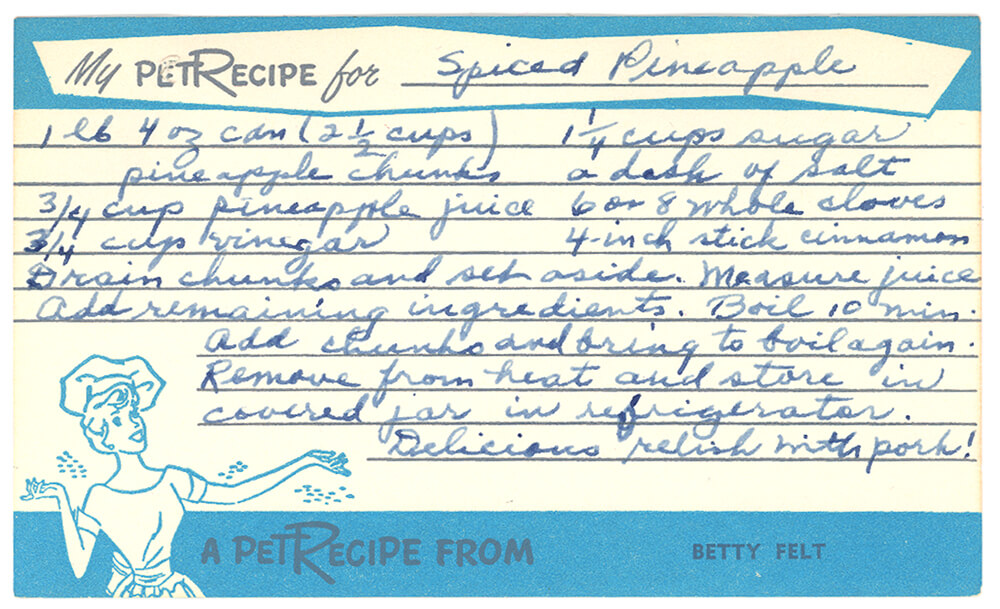 My PETRECIPE for Spiced Pineapple
1 lb 4 oz can (2 1/2 cups) 1 1/4 cups sugar
pineapple chunks a dash of salt
3/4 cup pineapple juice 6 or 8 whole cloves
3/4 cup vinegar 4-inch stick cinnamon
Drain chunks and set aside. Measure juice
Add remaining ingredients. Boil 10 min.
Add chunks and bring to boil again.
Remove from heat and store in
covered jar in refrigerator.
Delicious relish with pork!
A PETRECIPE FROM BETTY FELT